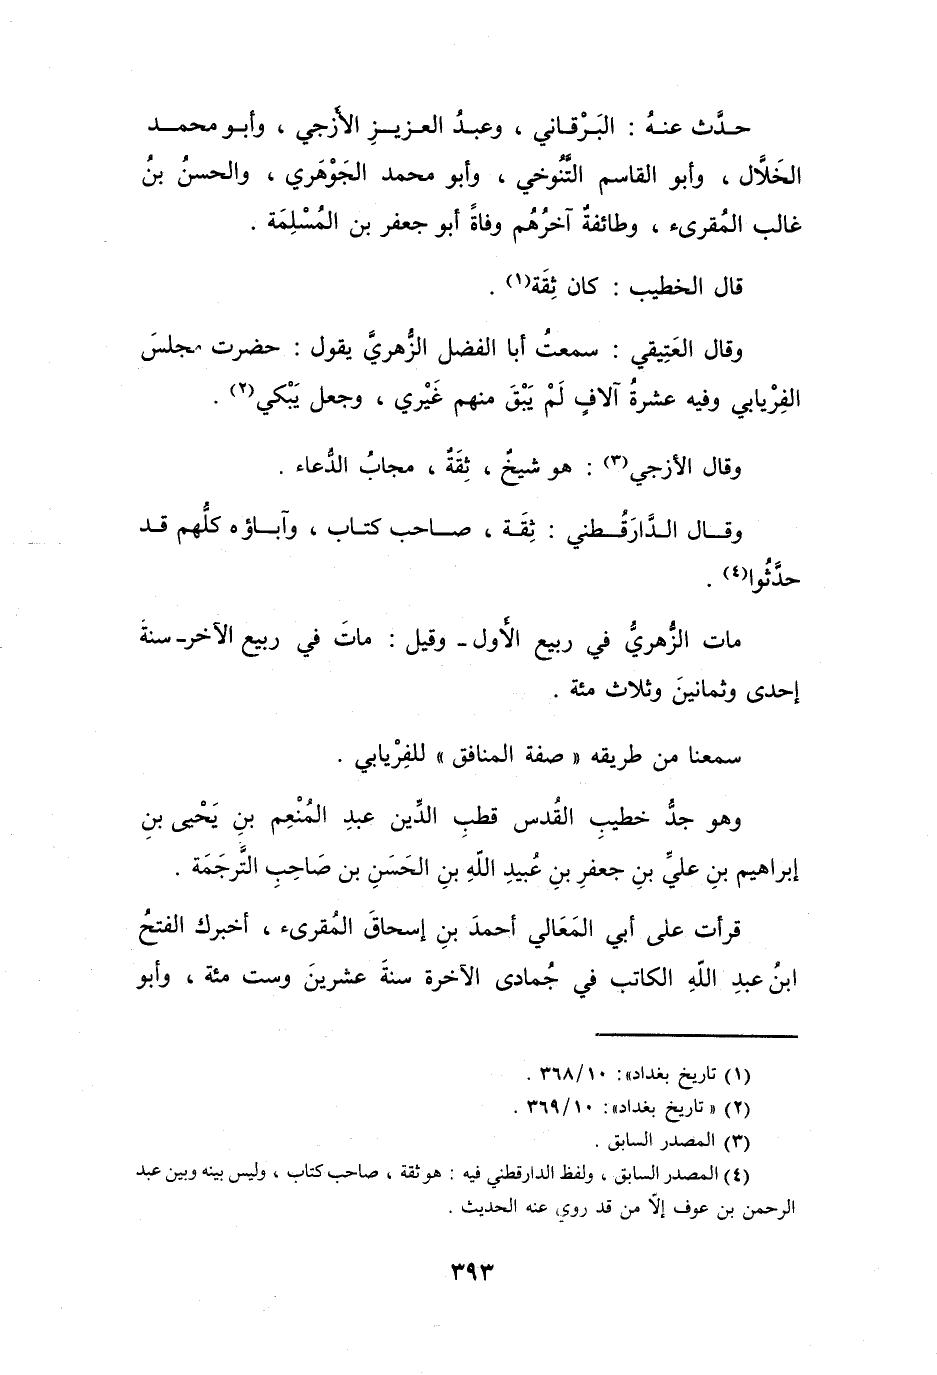 حدَّث عنهُ : البَرْقاني ، وعبدُ العزيزِ الأَزجي ، وأبو محمد
الخَلَّال ، وأبو القاسم التَّنُوخي ، وأبو محمد الجَوْهَري ، والحسنُ بنُ
غالب المُقرىء ، وطائفةٌ آخرُهُم وفاةً أبو جعفر بن المُسْلِمَة .
قال الخطيب : كان ثِقَة(١) .
وقال العَتِيقي : سمعتُ أبا الفضل الزُّهريَّ يقول : حضرت مجلسَ
الفِرْيابي وفيه عشرةُ آلافٍ لَمْ يَبْقَ منهم غَيْري ، وجعل يَبْكي(٢) .
وقال الأزجي(٣) : هو شيخٌ ، ثِقَةٌ ، مجابُ الدُّعاء .
وقال الدَّارَقُطني : ثِقَة ، صاحب كتاب ، وآباؤه كلُّهم قد
حدَّثُوا(٤) .
مات الزُّهريُّ في ربيع الأَول ـ وقيل : ماتَ في ربيع الآخر ـ سنةَ
إحدى وثمانينَ وثلاث مئة .
سمعنا من طريقه « صفة المنافق » للفِرْيابي .
وهو جدُّ خطيبِ القُدس قطبِ الدِّين عبدِ المُنْعِم بنِ يَحْيى بنِ
إبراهيم بنِ عليِّ بنِ جعفرِ بنِ عُبيدِ اللّهِ بنِ الحَسَنِ بن صَاحِبِ التَّرجَمَة .
قرأت على أبي المَعَالي أحمدَ بنِ إسحاقَ المُقرىء ، أخبرك الفتحُ
ابنُ عبدِ اللّهِ الكاتب في جُمادى الآخرة سنةَ عشرينَ وست مئة ، وأبو
(١) تاريخ بغداد» : ١٠/ ٣٦٨ .
(٢) « تاريخ بغداد» : ١٠/ ٣٦٩ .
(٣) المصدر السابق .
(٤) المصدر السابق ، ولفظ الدارقطني فيه : هو ثقة ، صاحب كتاب ، وليس بينه وبين عبد
الرحمن بن عوف إلّا من قد روي عنه الحديث .
٣٩٣